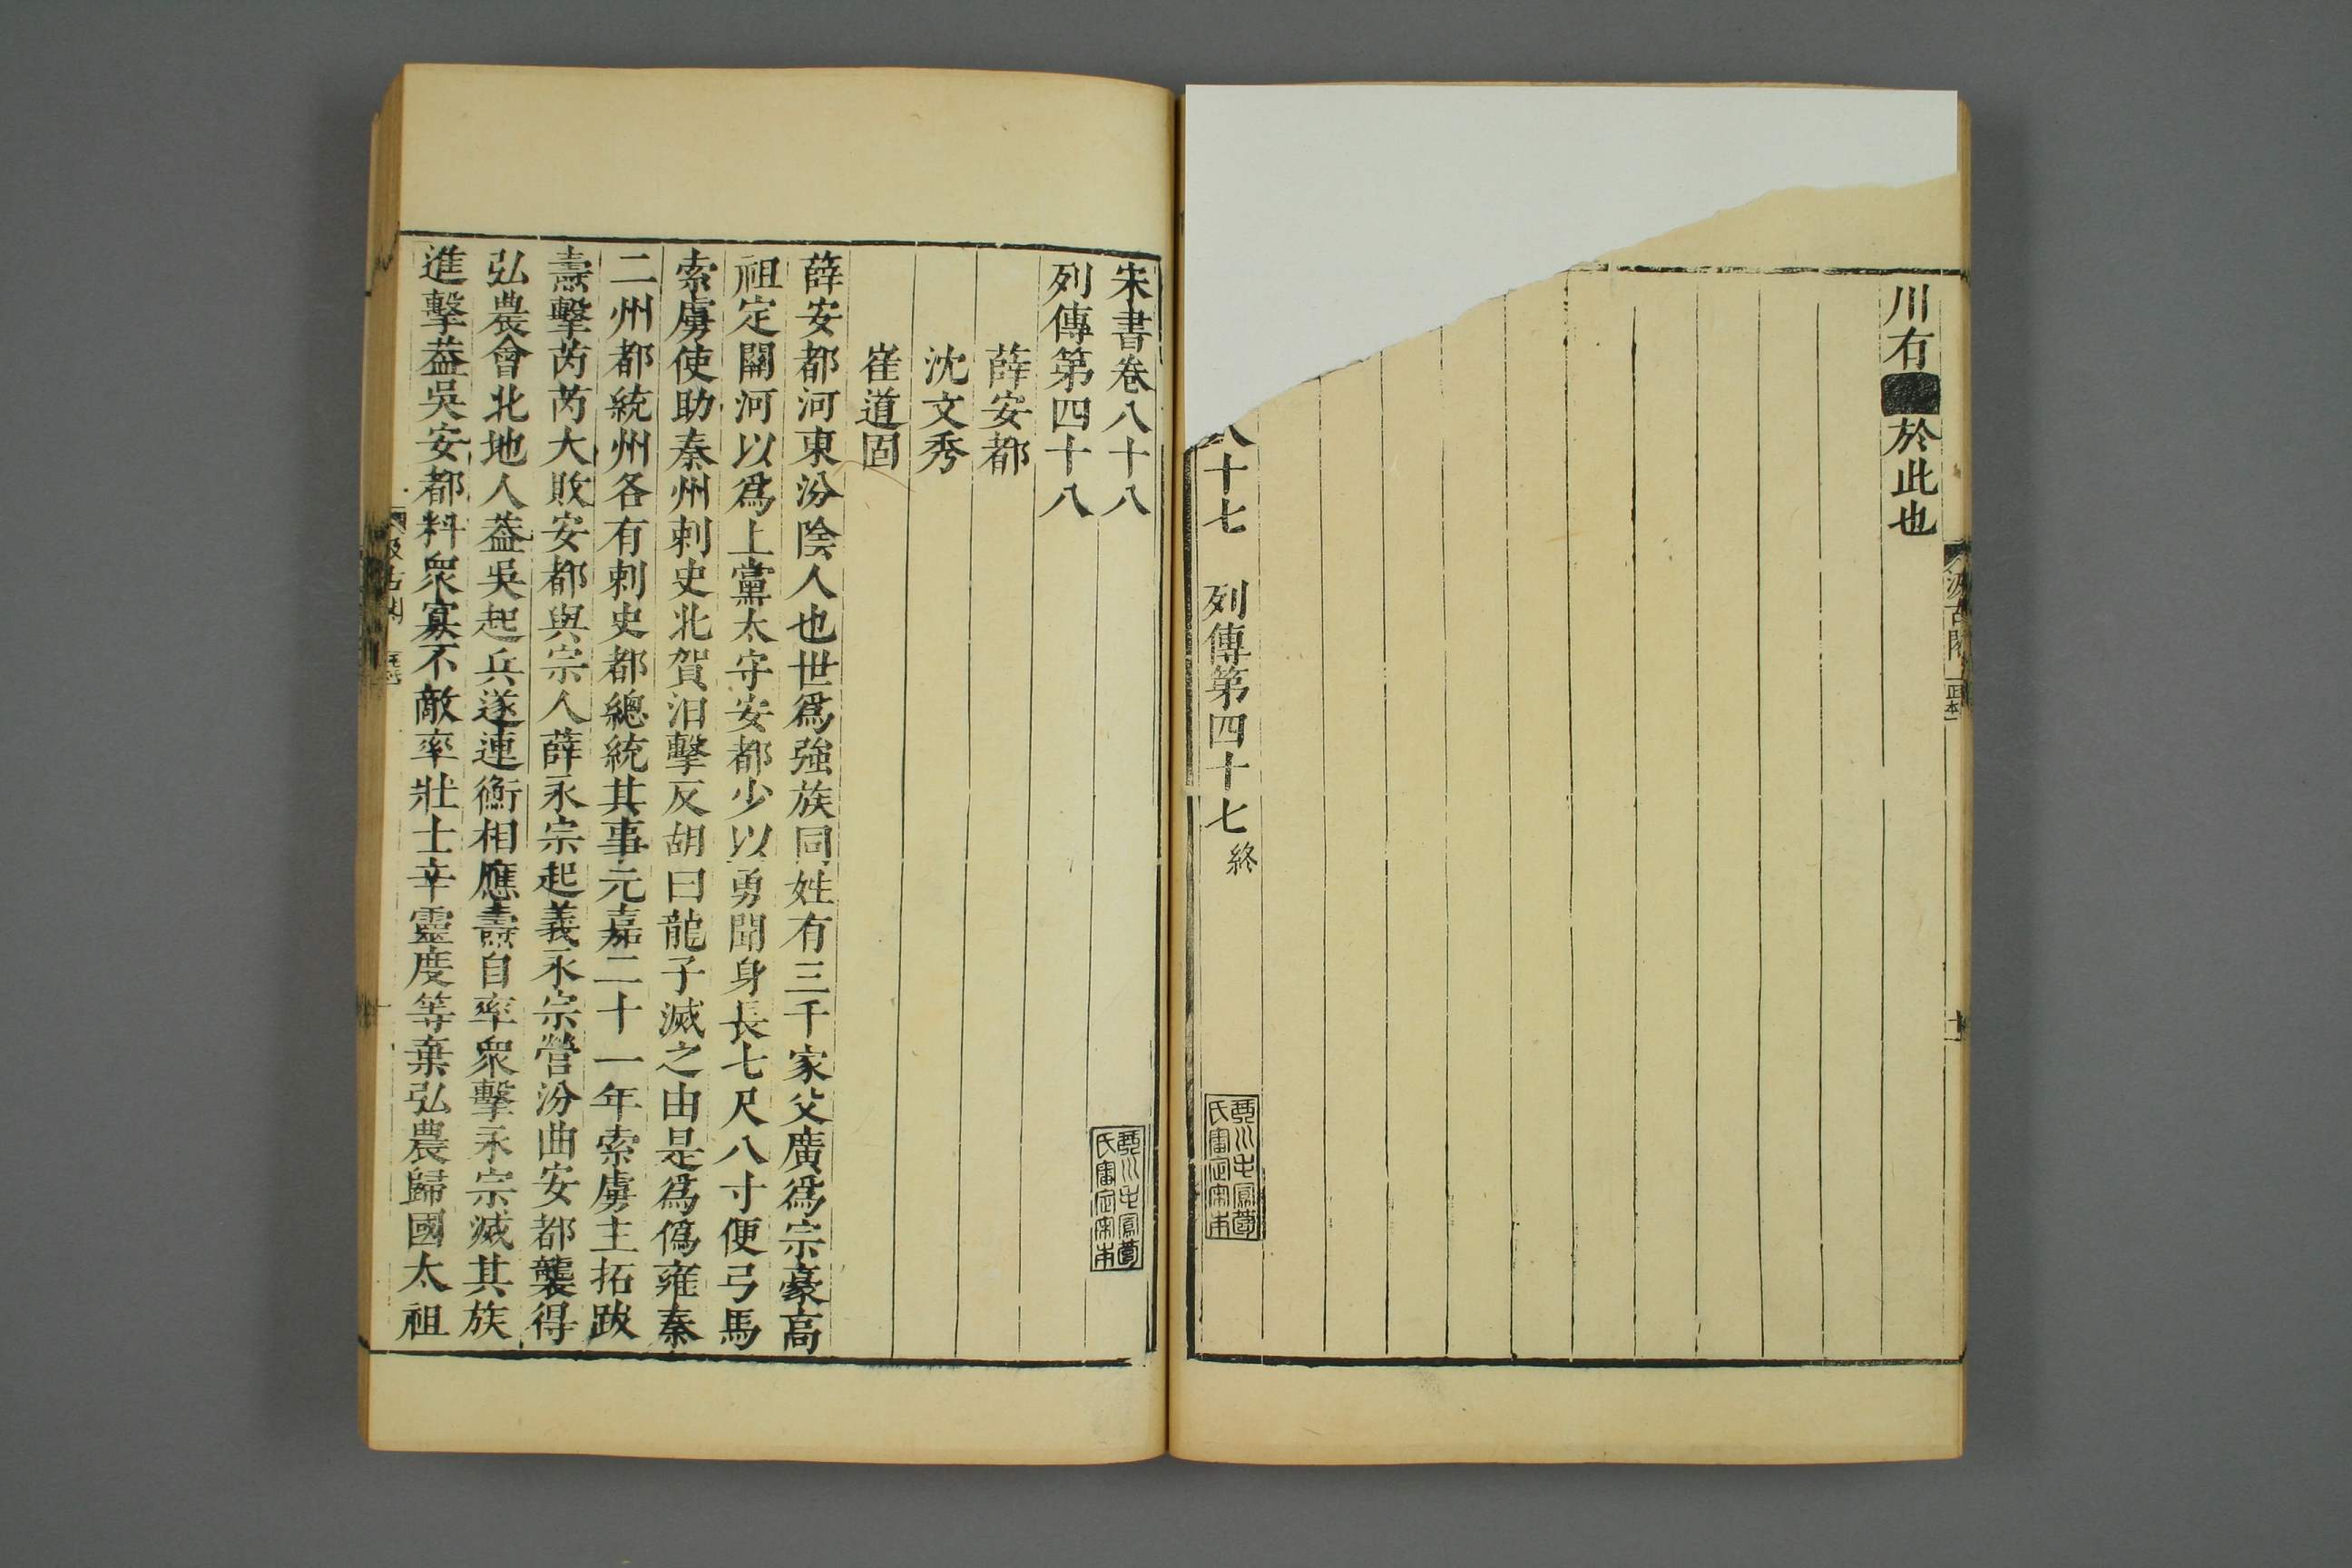 川右■於此也
八十七　列傳第四十七終
宋書卷八十八
列傳第四十八
薛安都
沈文秀
崔道固
薛安都河東汾陰人也世爲強族同姓有三千家父廣爲宗豪高
祖定關河以爲上黨太守安都少以勇聞身長七尺八寸便弓馬
索虜使助秦州刺史北賀汨擊反胡曰龍子滅之由是爲僞雍秦
二州都統州各有刺史都總統其事元嘉二十一年索虜主拓跋
燾擊芮芮大敗安都與宗人薛永宗起義永宗營汾曲安都襲得
弘農會北地人蓋吳起兵遂連衡相應燾自率衆擊永宗滅其族
進擊蓋吳安都料衆寡不敵率壯士辛靈度等棄弘農歸國太祖
汲古閣